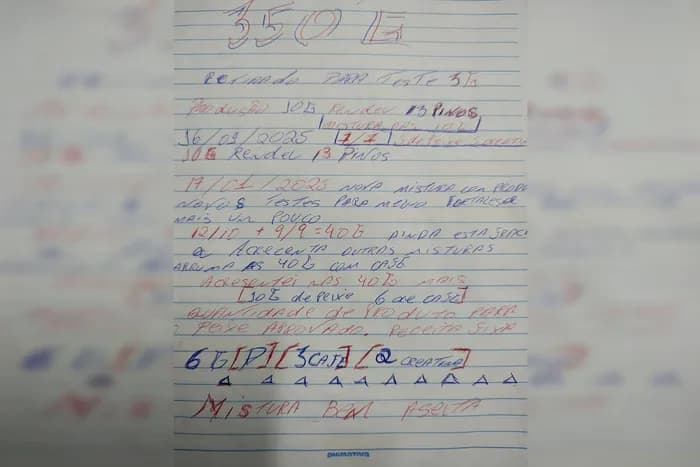 350 G
RETIRADO PARA TESTE 3G
PRODUÇÃO 10G RENDEU 13 PINOS
MISTURA DAS 10G
16/01/2025 1/1
10G RENDEU 13 PINOS
17/01/2025 NOVA MISTURA COM
NOVOS TESTES PARA MELHO
MAIS UM POUCO
12/10 + 9/9 = 40G AINDA ESTA
ACRECENTA OUTRAS MISTURAS
AS 40G COM CAFE
ACRESENTEI NAS 40G MAIS
[10G de PEIXE 6 de CAFE]
QUANTIDADE DE PRODUTO PARA
PEIXE APROVADO. RECEITA
6G [P] [3 CAFE] [2 CREATINA]
MISTURA BEM ACEITA
ANIMATIVA